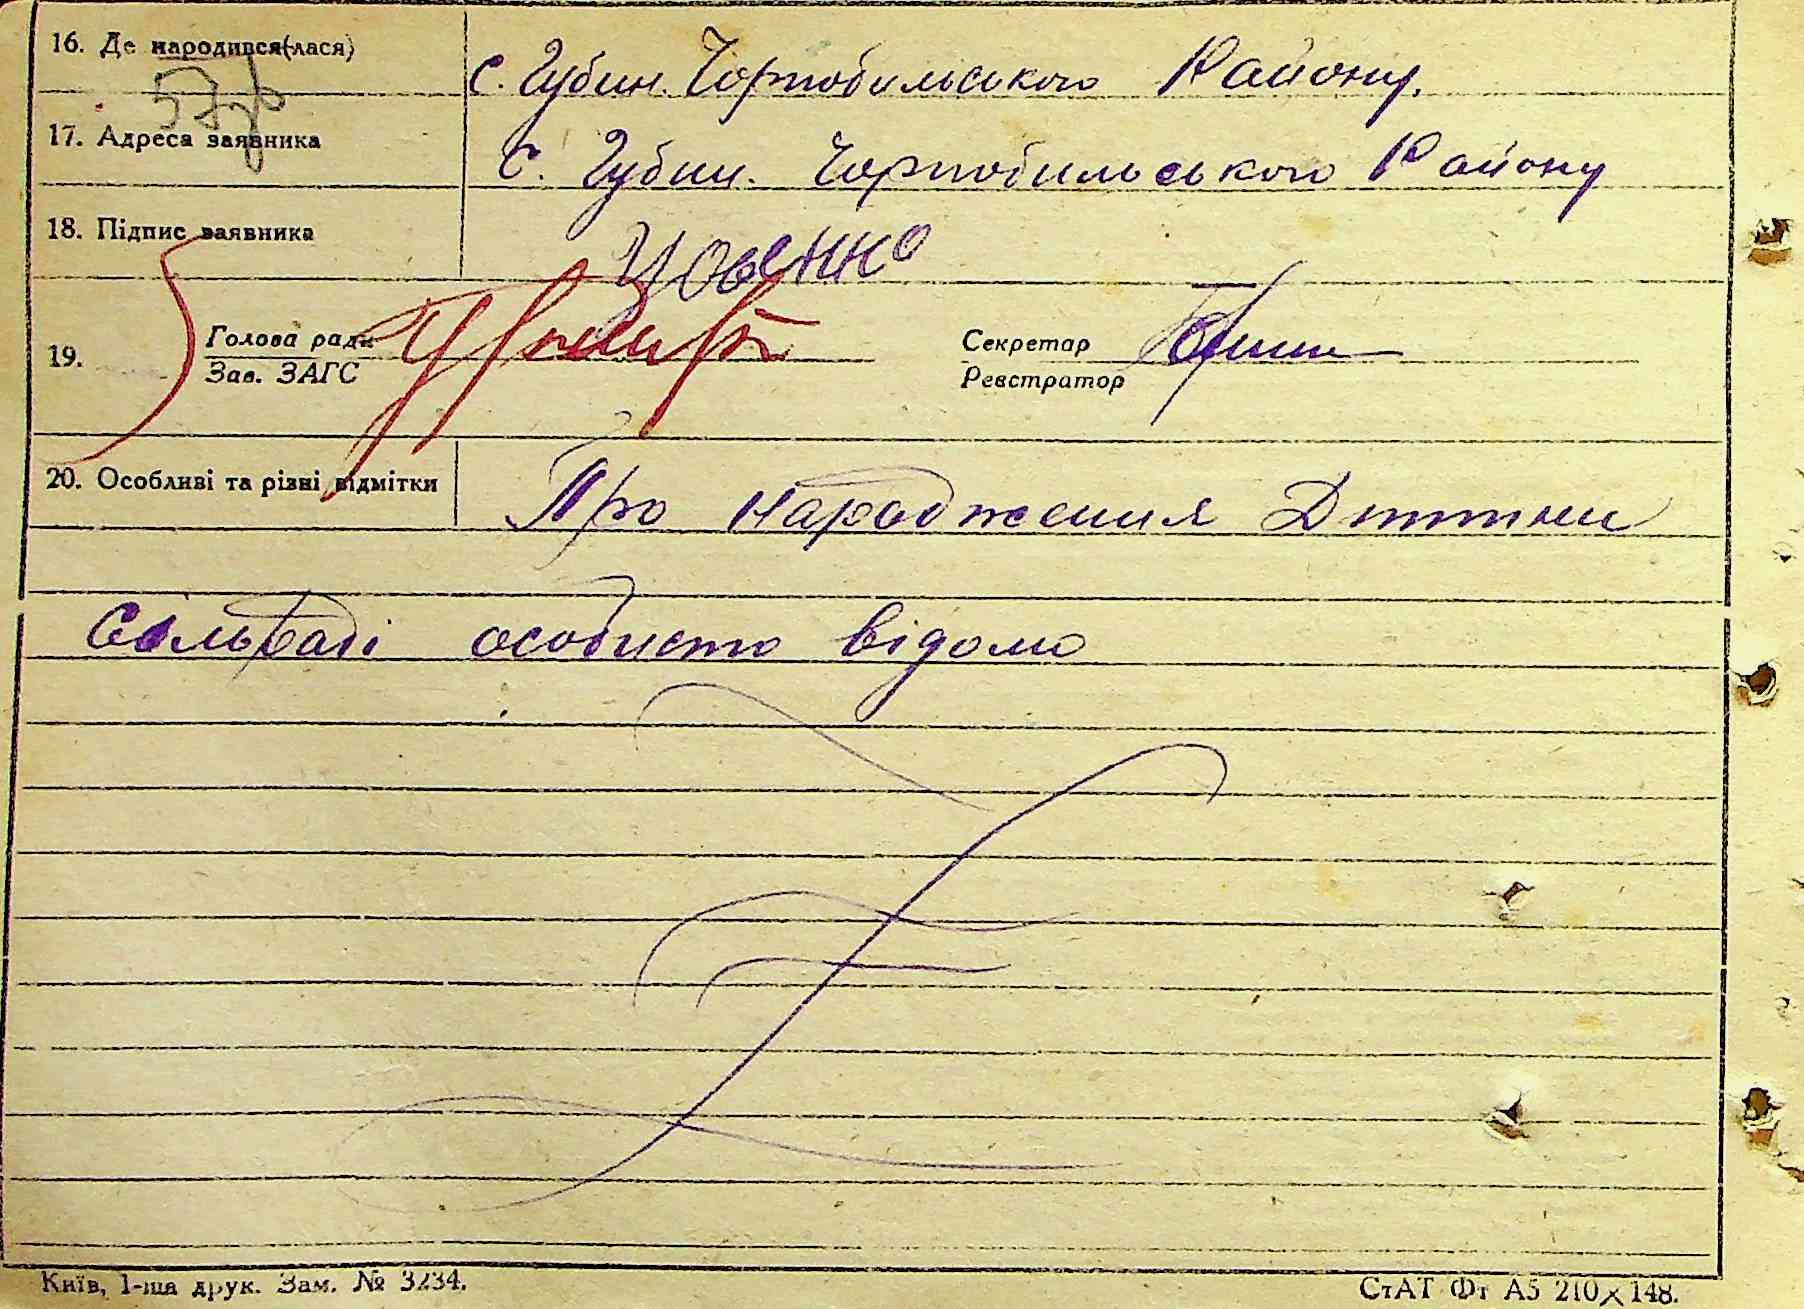 16. Де народився(лася) с. Губин. Чорнобильського Району.
57
17. Адреса заявника с. Губин. Чорнобильського Району
18. Підпис заявника
19. Голова ради Секретар
Зав. ЗАГС Реєстратор
20. Особливі та різні відмітки Про народження Дитини
Сільраді особисто відомо
Київ, 1-ша друк. Зам. № 3234. СтАТ Фт А5 210×148.